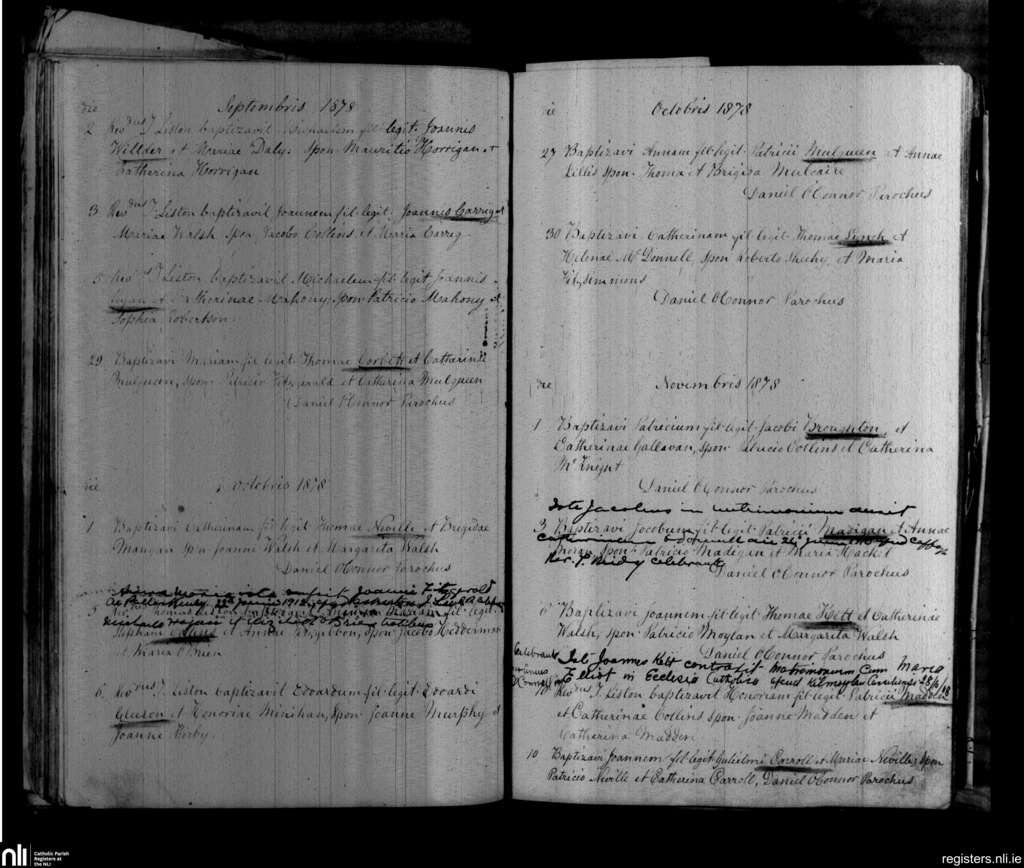 die Septembris 1878
2 Revdus T Liston baptizavit fil legit Joannis
Wiltser et Mariae Daly. Spon Mauritio Horrigan et
Catherina Horrigan
3 Revdus T Liston baptizavit Joannem fil legit Joannis Carrug et
Mariae Walsh Spon Jacobo Collins et Maria Carrug
5 Revdus T Liston baptizavit Michaelem fil legit Joannis
et Catherinae Mahony, spon Patricio Mahony et
Sophia Robertson
29 Baptizavi Mariam fil legit Thomae Corbett et Catherinae
Mulqueen, spon Patricio Fitzgerald et Catherina Mulqueen
Daniel O'Connor Parochus
die Octobris 1878
1 Baptizavi Catherinam fil legit Thomae Neville et Brigidae
Mangan spon Joanne Walsh et Margarita Walsh
Daniel O'Connor Parochus
Joanni Fitzgerald
1912
5 Revdus Thomas Liston baptizavit Mariam fil legit
O'Brien testibus
Stephani et Annae Fitzgibbon, spon Jacobo Hedderman
et Maria O'Brien
6 Revdus T Liston baptizavit Edoardum fil legit Edoardi
Gleeson et Honoriae Minihan, spon Joanne Murphy et
Joanne Kirby
die Octobris 1878
27 Baptizavi Annam fil legit Patricii Mulqueen et Annae
Lillis spon Thoma et Brigida Mulcaire
Daniel O'Connor Parochus
30 Baptizavi Catherinam fil legit Thomae Lynch et
Helenae McDonnell, spon Roberto Sheehy, et Maria
Fitzsimmons
Daniel O'Connor Parochus
die Novembris 1878
1 Baptizavi Patricium fil legit Jacobi Broughton, et
Catherinae Gallavan, spon Patricio Collins et Catherina
McKnight
Daniel O'Connor Parochus
Iste Jacobus in matrimonium duxit
3 Baptizavi Jacobum fil legit Patricii Madigan et Annae
Catherinam
spon Patricio Madigan et Maria Hackett
Rev. P. celebrante
Daniel O'Connor Parochus
8 Baptizavi Joannem fil legit Thomae Kett et Catherinae
Walsh, spon Patricio Moylan et Margarita Walsh
Daniel O'Connor Parochus
Celebrante
Ist Joannes Kett contraxit matrimonium cum Maria
Elliot in Ecclesia Catholica apud
10 Revdus T Liston baptizavit Honoriam fil legit Patricii Madden
et Catherinae Collins spon Joanne Madden et
Catherina Madden
10 Baptizavi Joannem fil legit Gulielmi Carroll et Mariae Neville, spon
Patricio Neville et Catherina Carroll, Daniel O'Connor Parochus
nli Catholic Parish
Registers at
the NLI
registers.nli.ie